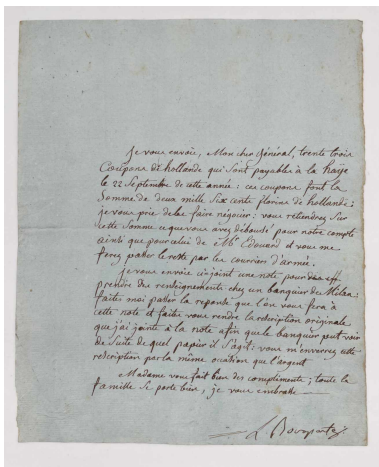 Je vous envoie, Mon cher Général, trente trois
Coupons de hollande qui sont payables à la haÿe
le 22 Septembre de cette année : ces coupons font la
Somme de deux mille Six cente florins de hollande :
je vous prie de les faire négocier : vous retiendrez sur
cette Somme ce que vous avez déboursé pour notre compte
ainsi que pour celui de Mr Edouard et vous me
ferez passer le reste par les courriers d'armée.
je vous envoie ci-joint une note pour
prendre des renseignements chez un banquier de Milan :
faites moi passer la réponse que l'on vous fera à
cette note et faites vous rendre la rescription originale
que j'ai jointe à la note afin que le banquier peut voir
de suite de quel papier il s'agit : vous m'enverrez cette
rescription par la même ocasion que l'argent
Madame vous fait bien des compliments ; toute la
famille se porte bien, je vous embrasse —
L Bonaparte